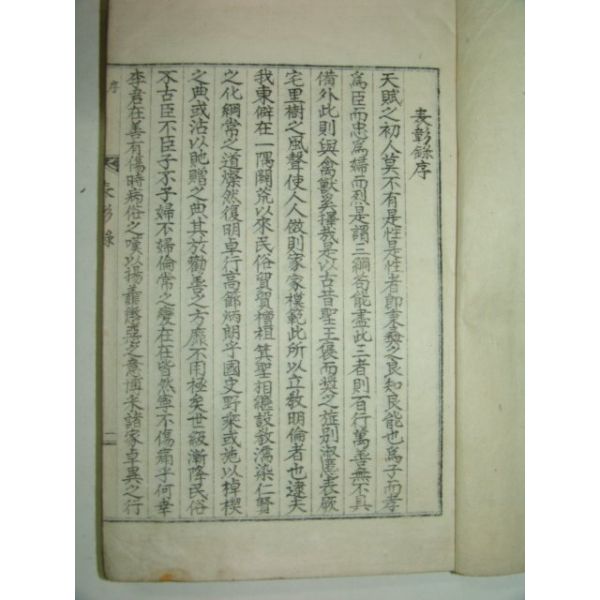 表彰錄序
天賦之初人莫不有是性是性者卽秉彜之良知良能也爲子而孝
爲臣而忠爲婦而烈是謂三綱苟能盡此三者則百行萬善無不具
備外此則與禽獸奚擇哉是以古昔聖王褒而奬之旌別淑慝表厥
宅里樹之風聲使人人倣則家家模範此所以立敎明倫者也逮夫
我東僻在一隅闢荒以來民俗貿貿檀祖箕聖相繼設敎濡染仁賢
之化綱常之道燦然復明卓行高節炳朗乎國史野乘或施以棹楔
之典或沾以貤贈之典其於勸善之方靡不用極矣世級漸降民俗
不古臣不臣子不子婦不婦倫常之變在在皆然寧不傷痛乎何幸
李君在善有傷時病俗之嘆以揚善懲惡之意博采諸家卓異之行
序
表彰錄
一